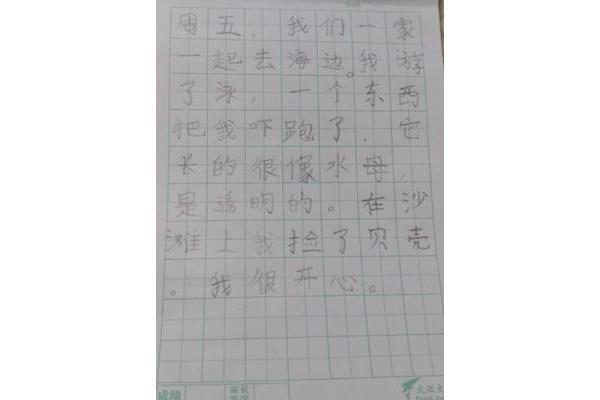 周五，我们一家
一起去海边。我游
了泳，一个东西
把我吓跑了，它
长的很像水母，
是透明的。在沙
滩上我捡了贝壳
。我很开心。
成绩
家长